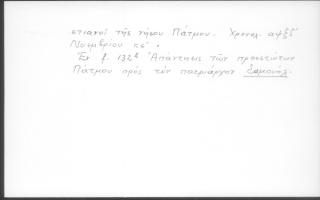 στιανοί τῆς νήσου Πάτμου. Χρονολ. αψξδ´
Νοεμβρίου κς´.
Ἐν f. 132r Ἀπάντησις τῶν προεστώτων
Πάτμου πρὸς τὸν πατριάρχην Σαμουήλ.